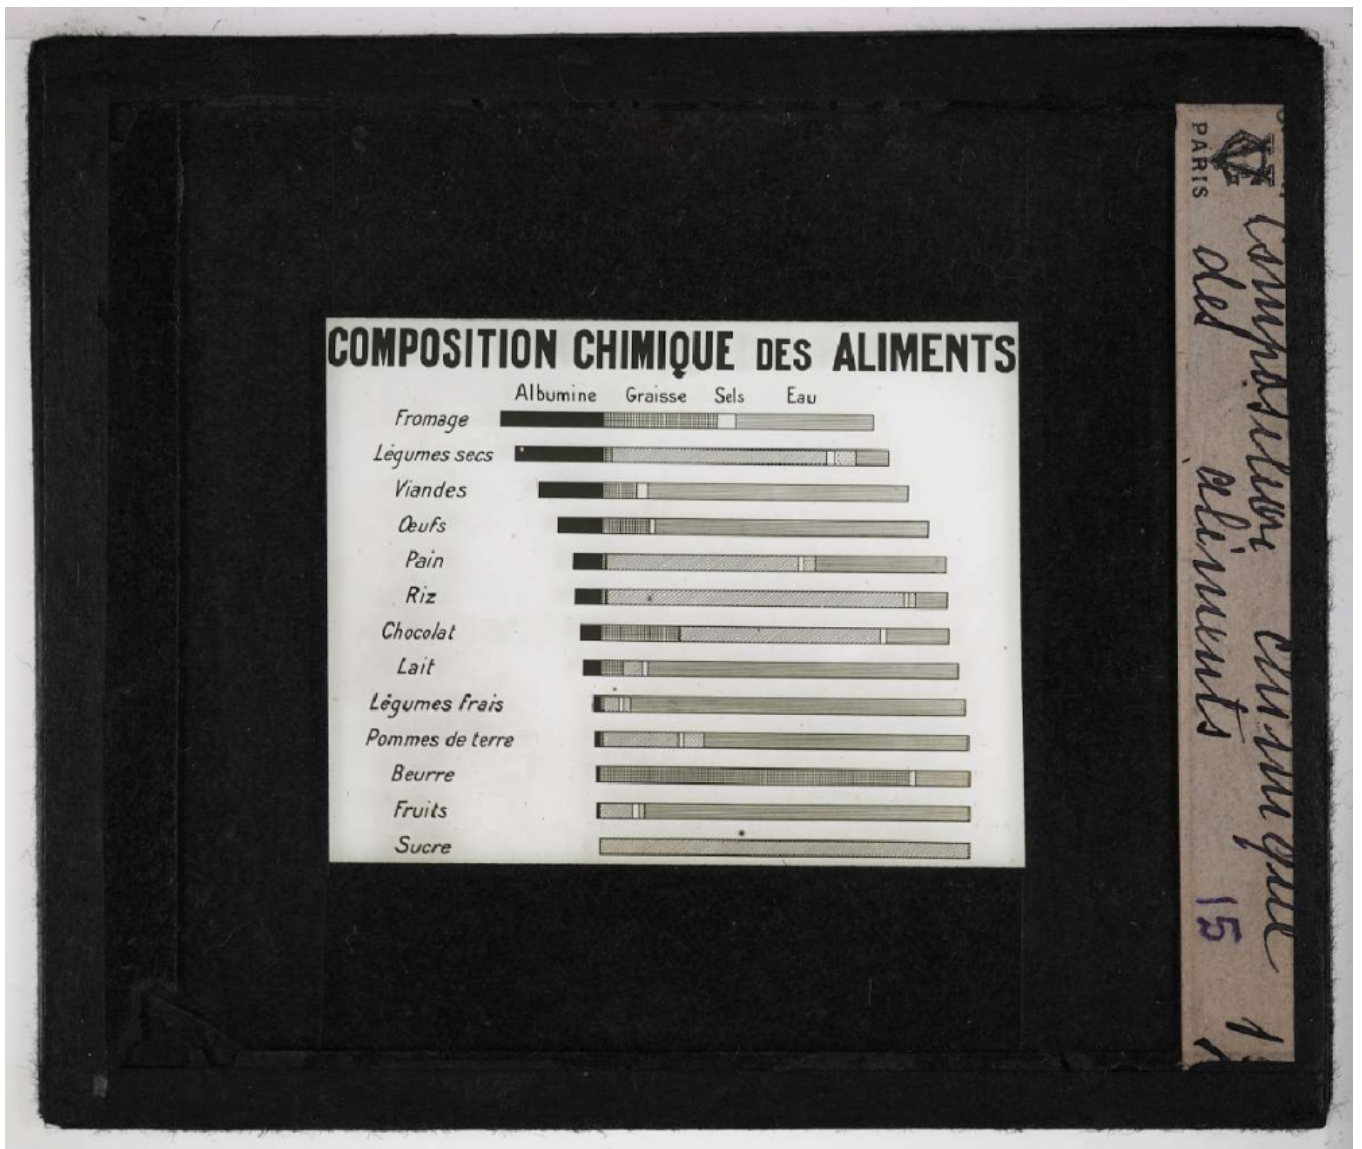 COMPOSITION CHIMIQUE DES ALIMENTS
Albumine Graisse Sels Eau
Fromage
Légumes secs
Viandes
Œufs
Pain
Riz
Chocolat
Lait
Légumes frais
Pommes de terre
Beurre
Fruits
Sucre
PARIS
Composition Chimique
des aliments 15